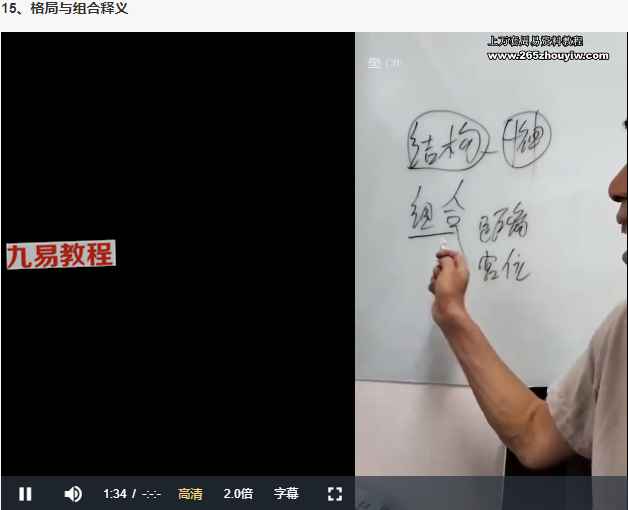 15、格局与组合释义
上万套周易资料教程
www.265zhouyiw.com
结构 十神
组合
客位
九易教程
1:34 / -:-:- 高清 2.0倍 字幕